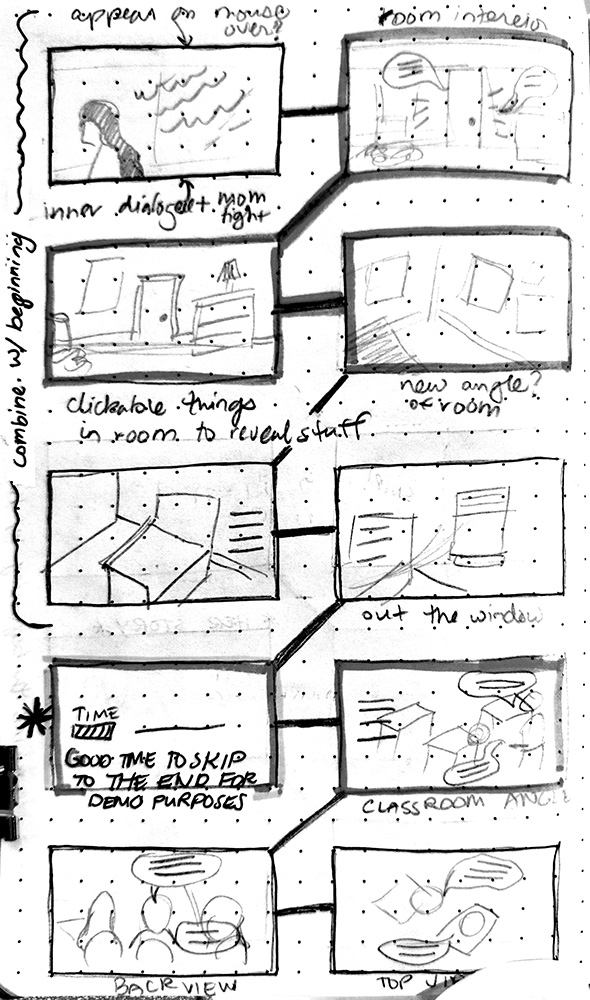 appears on mouse
over?
room interior
inner dialogue + mom
fight
combine w/ beginning
clickable things
in room to reveal stuff
new angle?
of room
out the window
TIME
GOOD TIME TO SKIP
TO THE END FOR
DEMO PURPOSES
CLASSROOM ANGLE
BACK VIEW
TOP VIE